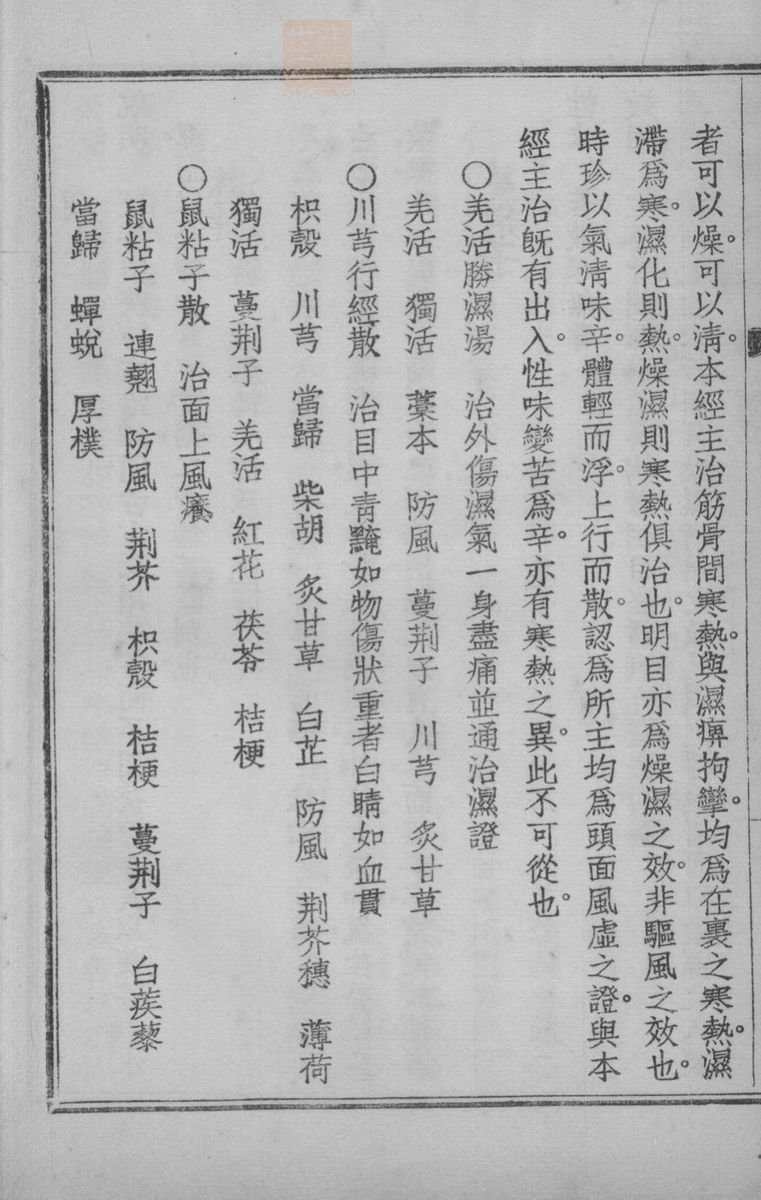 者可以燥。可以淸。本經主治筋骨間寒熱。與濕痹拘攣。均爲在裏之寒熱。濕
滯爲寒。濕化則熱。燥濕則寒熱俱治也。明目亦爲燥濕之效。非驅風之效也。
時珍以氣淸味辛。體輕而浮。上行而散。認爲所主均爲頭面風虛之證。與本
經主治旣有出入。性味變苦爲辛。亦有寒熱之異。此不可從也。
〇羌活勝濕湯　治外傷濕氣一身盡痛並通治濕證
羌活　獨活　藁本　防風　蔓荆子　川芎　炙甘草
〇川芎行經散　治目中靑黤如物傷狀重者白睛如血貫
枳殼　川芎　當歸　柴胡　炙甘草　白芷　防風　荆芥穗　薄荷
獨活　蔓荆子　羌活　紅花　茯苓　桔梗
〇鼠粘子散　治面上風癢
鼠粘子　連翹　防風　荆芥　枳殼　桔梗　蔓荆子　白蒺藜
當歸　蟬蛻　厚樸